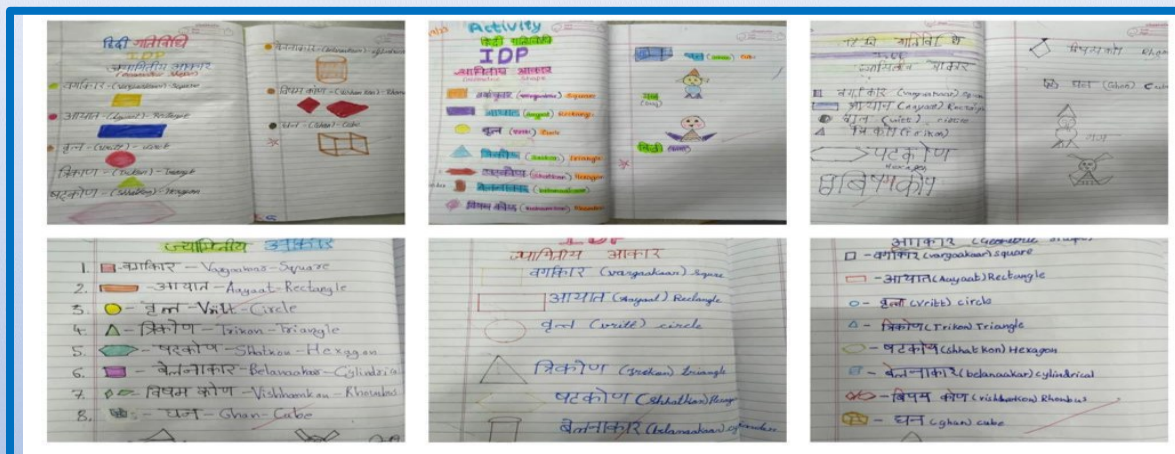 हिंदी गतिविधि
IDP
ज्यामितीय आकार
वर्गाकार-(vargaakaar)-Square
आयात-(Aayaat)-Rectangle
वृत्त-(vritt)-circle
त्रिकोण-(Trikon)-Triangle
षट्कोण-(Shhatkon)-Hexagon
विषम कोण-
घन-(Ghan)-Cube
Activity
हिंदी गतिविधि
IDP
ज्यामितीय आकार
Geometric Shape
वर्गाकार (vargaakaar) Square
आयात (Aayaat) Rectangle
वृत्त (vritt) Circle
त्रिकोण (Trikon) Triangle
षट्कोण (Shhatkon) Hexagon
बेलनाकार
विषम कोण
घन Cube
आकार
वर्गाकार (vargaakaar)
आयात (Aayaat) Rectangle
circle
षटकोण
Hexagon
विषमकोण
विषमकोण
घन (Ghan) Cube
ज्यामितीय आकार
1. वर्गाकार - Vargaakaar - Square
2. आयात - Aayaat - Rectangle
3. वृत्त - Vritt - Circle
4. त्रिकोण - Trikon - Triangle
5. षट्कोण - Shatkon - Hexagon
6. बेलनाकार - Belanaakar - Cylindrical
7. विषम कोण - Vishhamkon - Rhombus
8. घन - Ghan - Cube
ज्यामितीय आकार
वर्गाकार (vargaakaar) Square
आयात (Aayaat) Rectangle
वृत्त (vritt) circle
त्रिकोण triangle
षटकोण (Shhatkon)
बेलनाकार (belanaakaar)
आकार (Geometric
वर्गाकार (vargaakaar) square
आयात (Aayaat) Rectangle
वृत्त (Vritt) circle
त्रिकोण (Trikon) Triangle
षटकोण (shhatkon) Hexagon
बेलनाकार (belanaakar) cylindrical
विषम कोण Rhombus
घन (ghan) cube